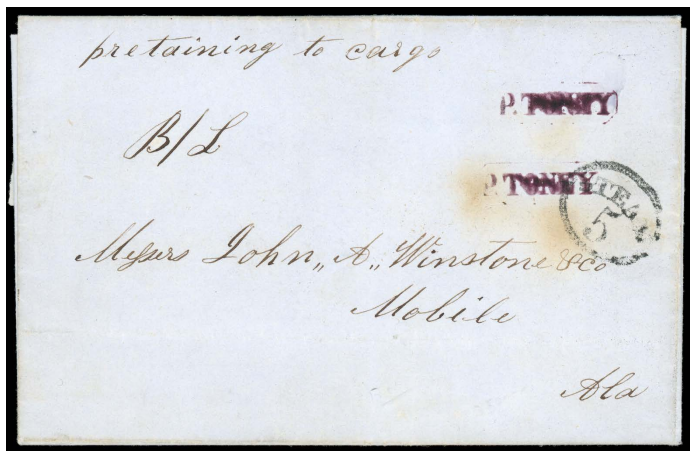 pretaining to cargo
P. TONEY
B/L
P. TONEY
5
Messrs John „ A „ Winstone & Co
Mobile
Ala